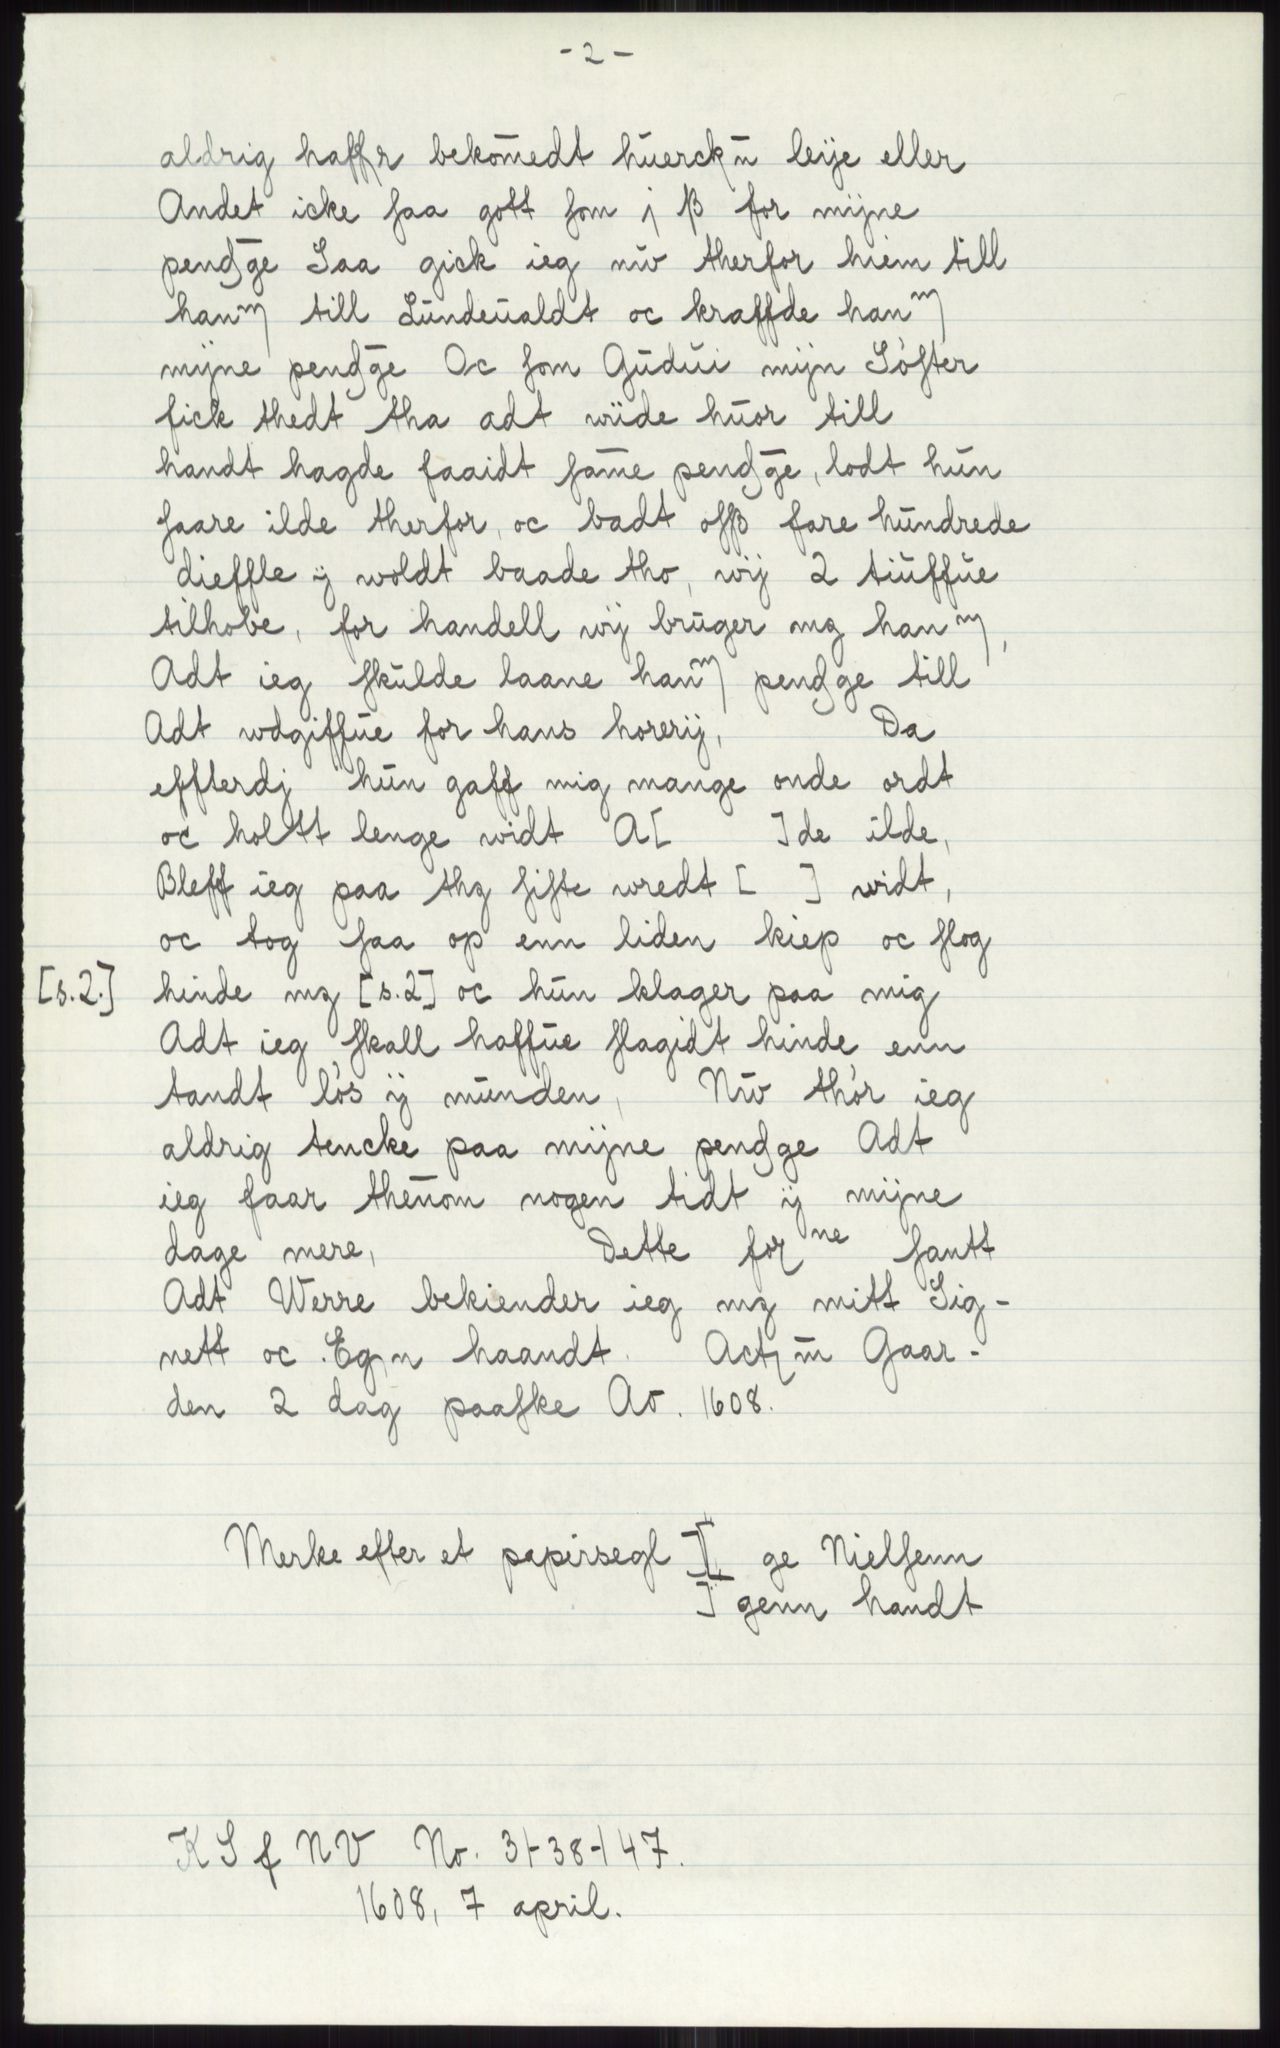 - 2 -
aldrig haffr bekom̄edt huerck̄n leije eller
Andet icke saa gott som j ß for mijne
pendge Saa gick ieg nw therfor hiem till
hanm till Lundeualdt oc kraffde hanm
mijne pendge Oc som Gudui mijn Søster
fick thedt tha adt wide huor till
handt hagde faaidt sam̄e pendge, lodt hun
saare ilde therfor, oc badt osß fare hundrede
dieffle ij woldt baade tho, wij 2 tiuffue
tilhobe, for handell wij bruger mz hanm,
Adt ieg skulde laane hanm pendge till
Adt wdgiffue for hans horerij, Da
effterdj hun gaff mig mange onde ordt
oc holtt lenge widt A[ ]de ilde,
Bleff ieg paa thz siste wredt [ ] widt,
oc tog saa op enn liden kiep oc slog
[s.2.] hinde mz [s.2] oc hun klager paa mig
Adt ieg skall haffue slagidt hinde enn
tandt løs ij munden, Nw thør ieg
aldrig tencke paa mijne pendge Adt
ieg faar thenom nogen tidt ij mijne
dage mere, Dette forne santt
Adt Werre bekiender ieg mz mitt Sig-
nett oc Egn haandt. Actm̄ Gaar-
den 2 dag paaske Ao. 1608.
Merke efter et papirsegl ][ ge Nielsenn
] genn handt
K S f N V No. 31-38-147.
1608, 7 april.